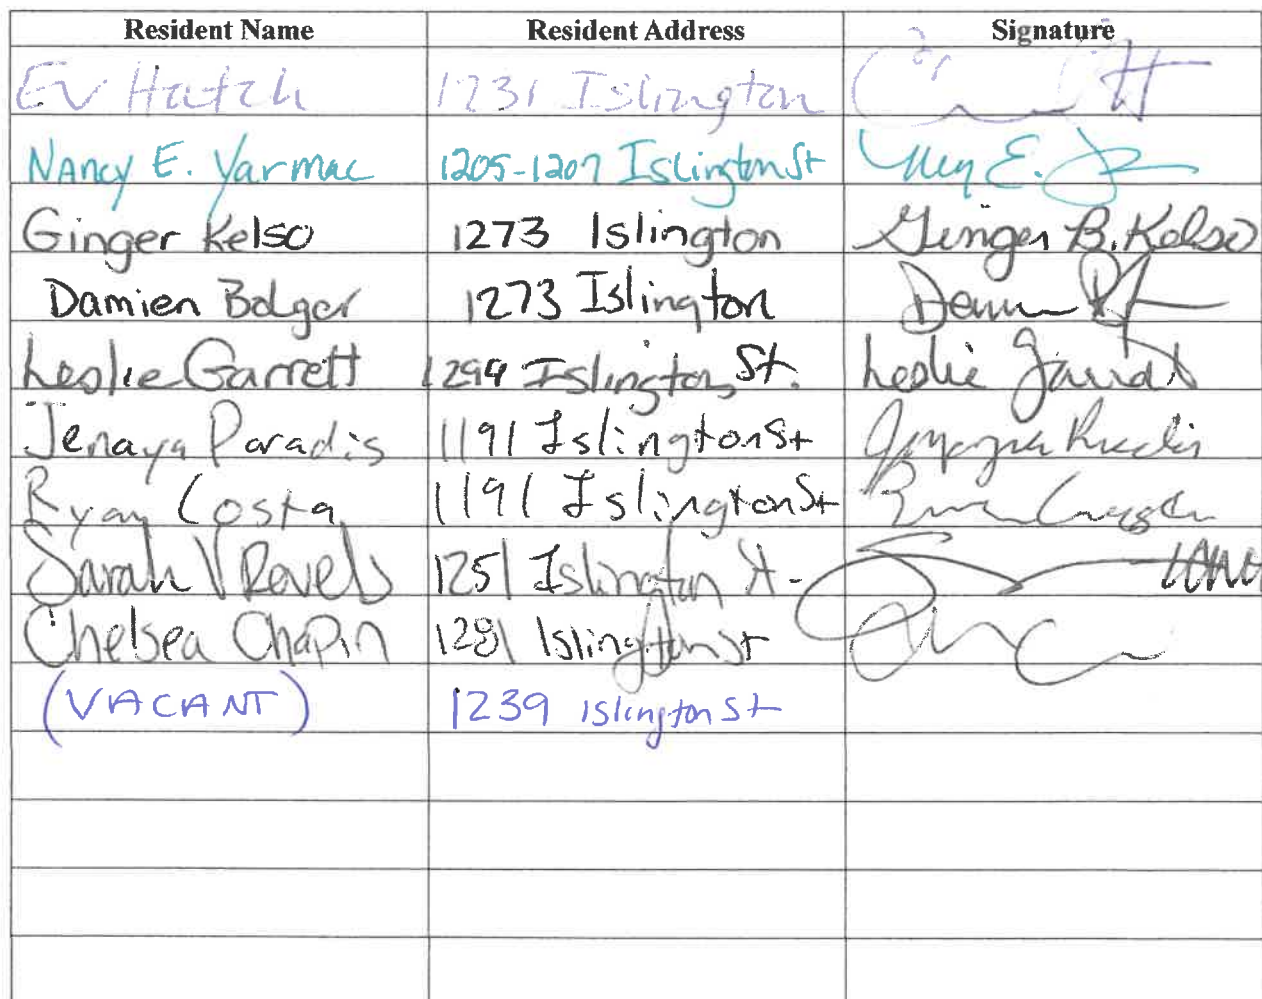 Resident Name Resident Address Signature
Ev Hatch 1231 Islington
Nancy E. Yarmac 1205-1207 Islington St
Ginger Kelso 1273 Islington Ginger B. Kelso
Damien Bolger 1273 Islington
Leslie Garrett 1294 Islington St. Leslie Garrett
Jenaya Paradis 1191 Islington St
Ryan Costa 1191 Islington St
Sarah V Revels 1251 Islington St.
Chelsea Chapin 1281 Islington St
(VACANT) 1239 Islington St